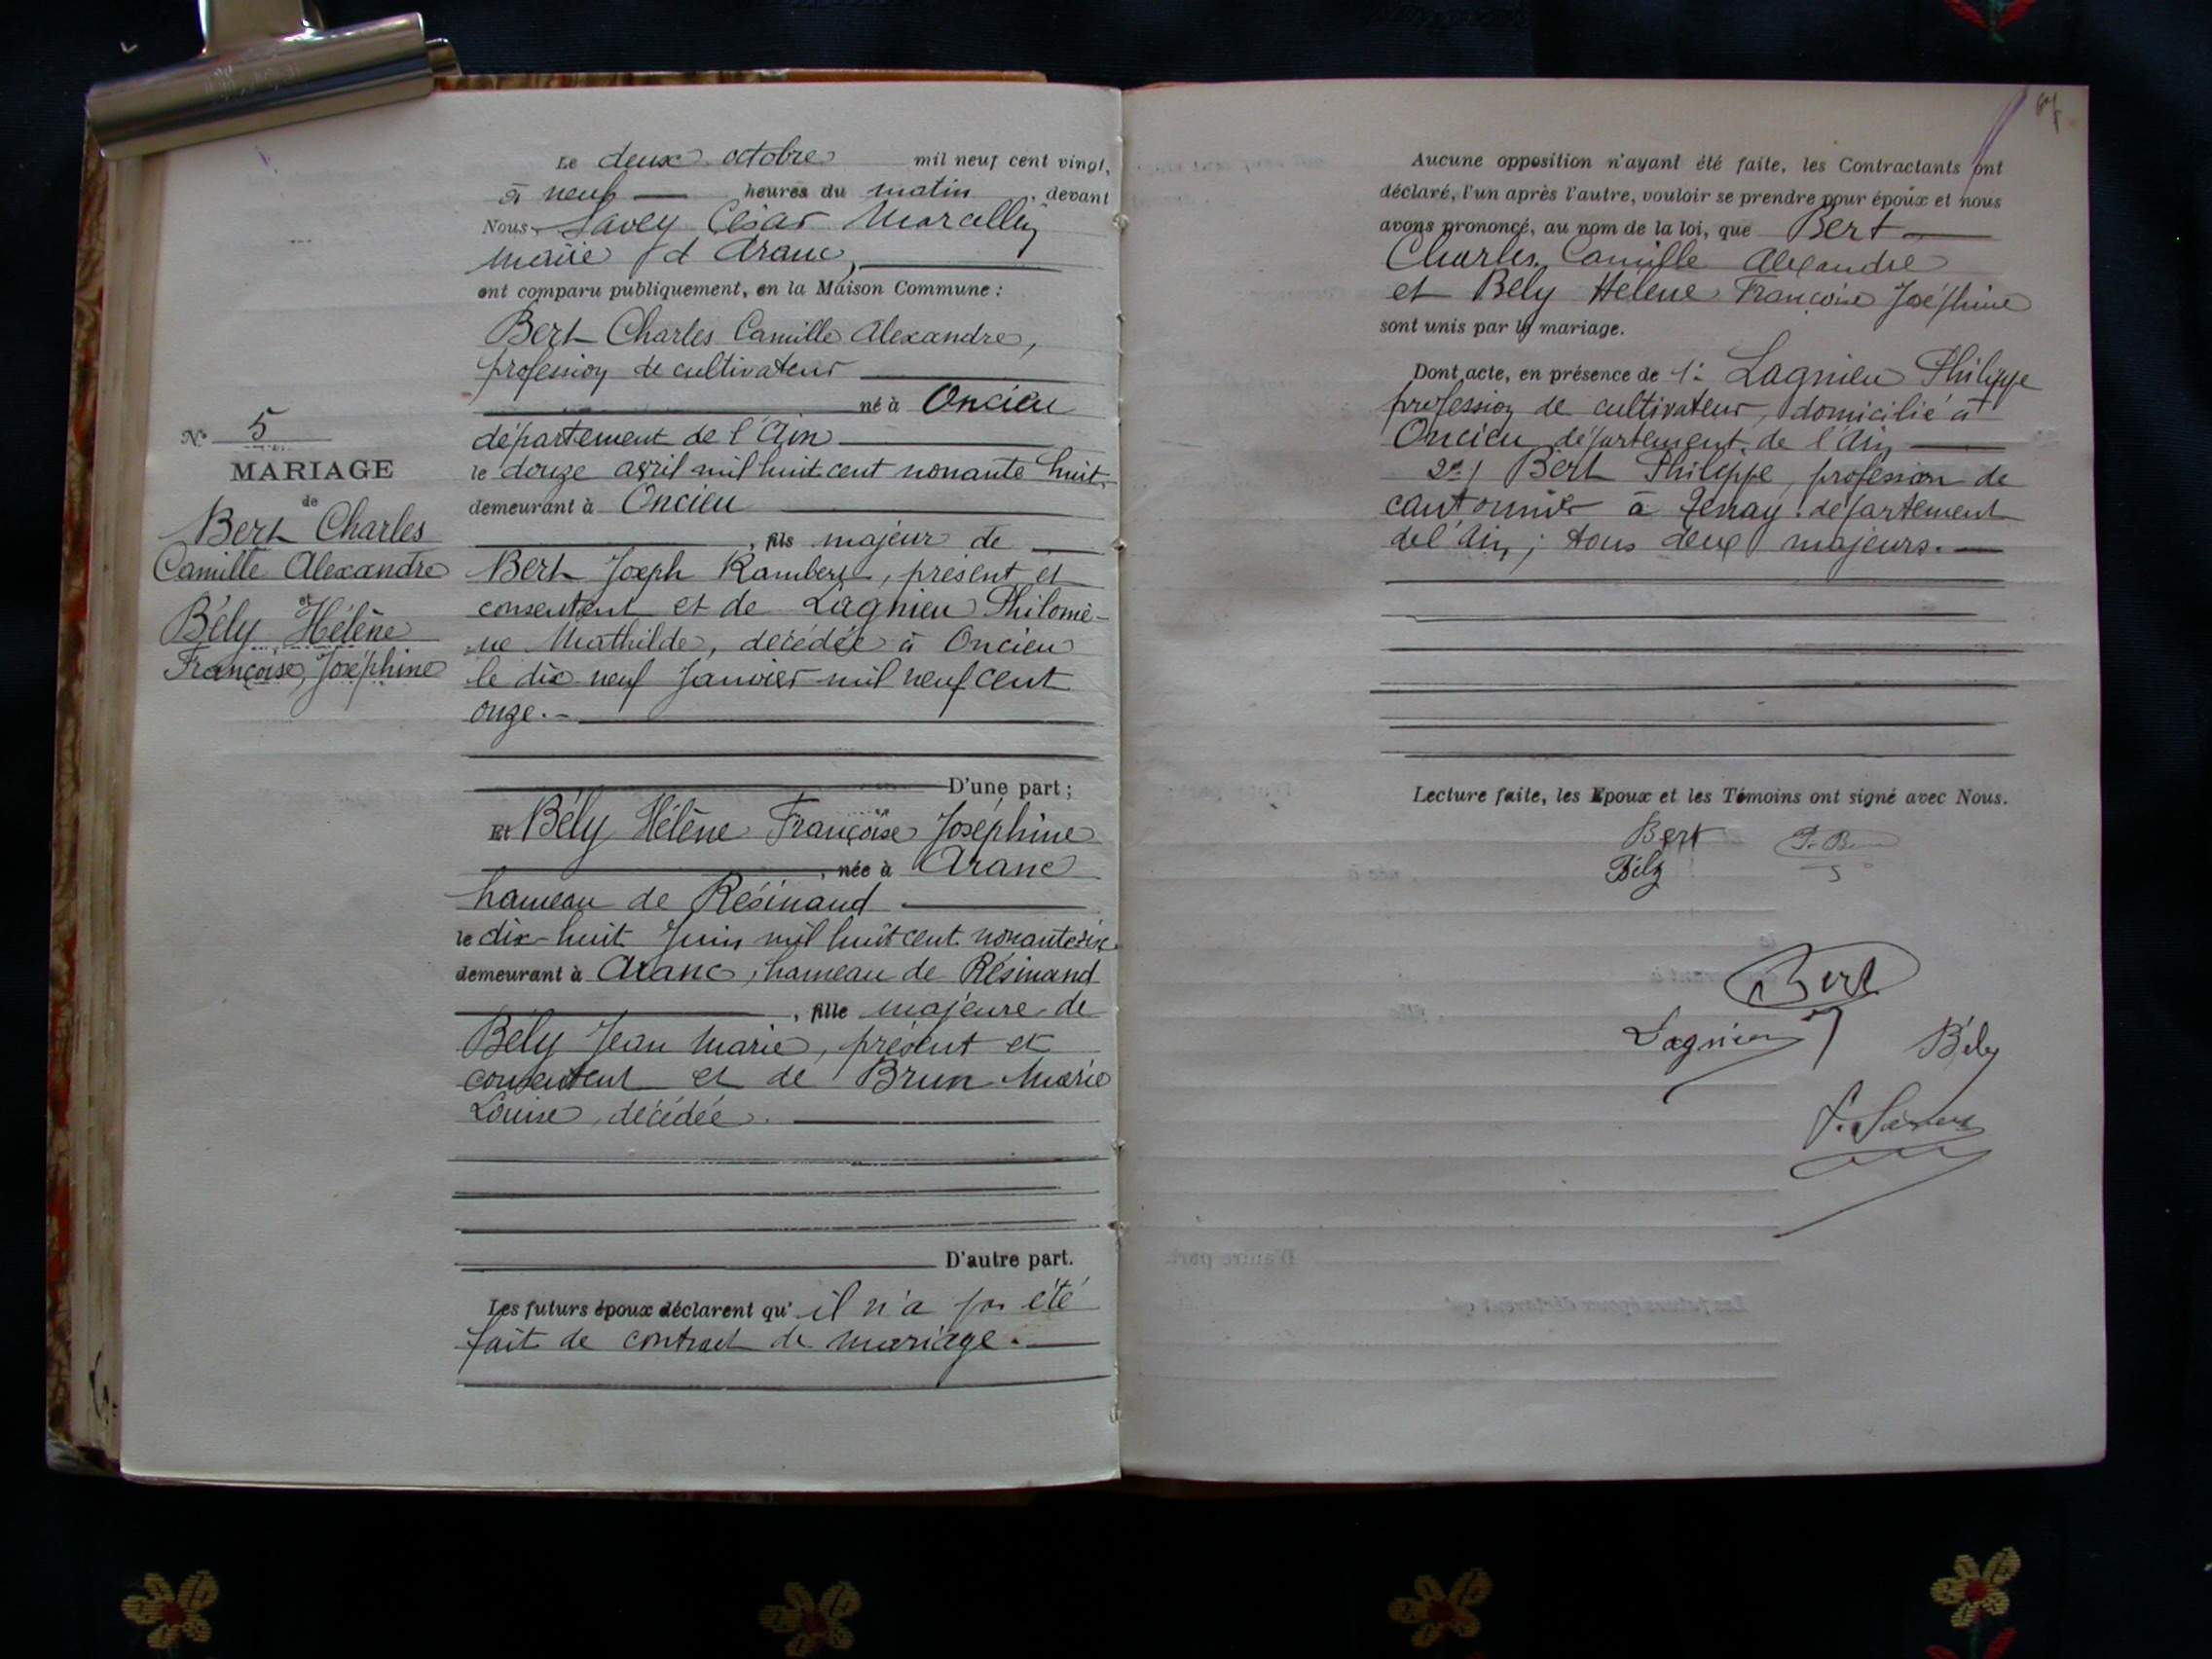 N° 5
MARIAGE
de
Bert Charles
Camille Alexandre
et
Bély Hélène
Françoise Joséphine
Le deux octobre mil neuf cent vingt,
à neuf heures du matin, devant
Nous, Savey César Marcellin
maire d'Aranc,
ont comparu publiquement, en la Maison Commune :
Bert Charles Camille Alexandre,
profession de cultivateur
né à Oncieu
département de l'Ain
le douze avril mil huit cent nonante huit,
demeurant à Oncieu
, fils majeur de
Bert Joseph Rambert, présent et
consentent et de Lagnieu Philomè-
ne Mathilde, décédée à Oncieu
le dix neuf Janvier mil neuf cent
onze.-
D'une part ;
Et Bély Hélène Françoise Joséphine
, née à Aranc
hameau de Résinand
le dix-huit Juin mil huit cent nonante six
demeurant à Aranc, hameau de Résinand
, fille majeure de
Bély Jean Marie, présent et
consentent et de Brun Marie
Louise, décédée.
D'autre part.
Les futurs époux déclarent qu' il n'a pas été
fait de contract de mariage.
Aucune opposition n'ayant été faite, les Contractants ont
déclaré, l'un après l'autre, vouloir se prendre pour époux et nous
avons prononcé, au nom de la loi, que Bert
Charles Camille Alexandre
et Bély Hélène Françoise Joséphine
sont unis par le mariage.
Dont acte, en présence de 1° Lagnieu Philippe
profession de cultivateur, domicilié à
Oncieu département de l'Ain
2°/ Bert Philippe, profession de
cantonnier à Tenay département
de l'Ain ; tous deux majeurs.
Lecture faite, les Epoux et les Témoins ont signé avec Nous.
Bert
Bély
Bert
Lagnieu
Bély